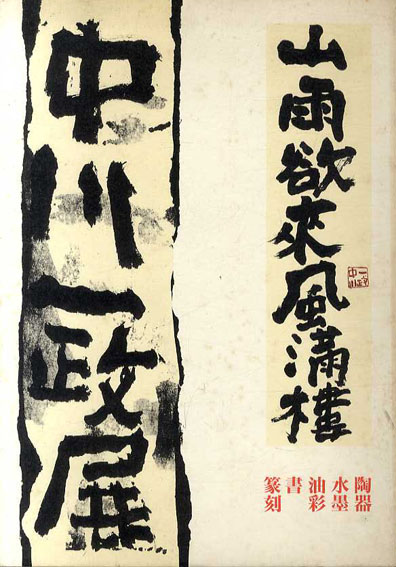 山雨欲來風滿樓
一政
中川
陶器
水墨
油彩
書
篆刻
中川一政展